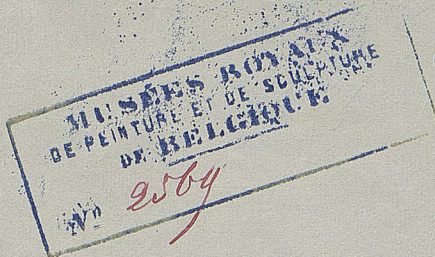 MUSÉES ROYAUX
DE PEINTURE ET DE SCULPTURE
DE BELGIQUE
No 2569